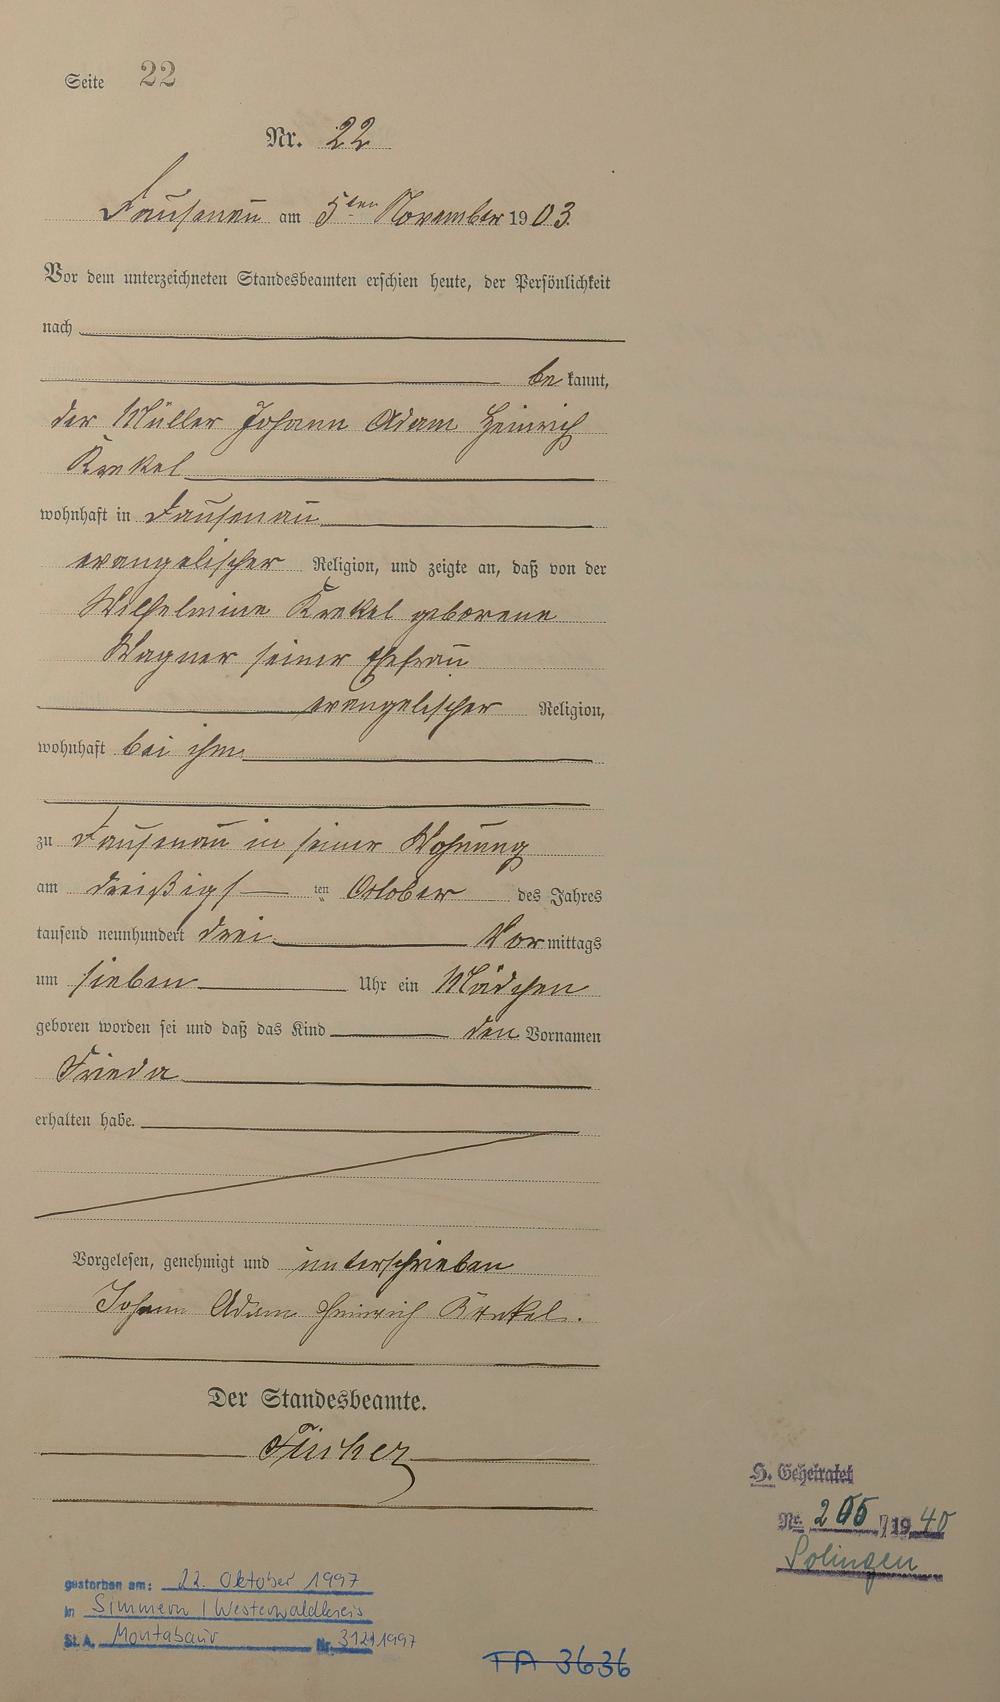 Seite 22
Nr. 22
Dausenau am 5ten November 1903.
Vor dem unterzeichneten Standesbeamten erschien heute, der Persönlichkeit
nach
be kannt,
der Müller Johann Adam Heinrich
Krekel
wohnhaft in Dausenau
evangelischer Religion, und zeigte an, daß von der
Wilhelmine Krekel geborene
Wagner seiner Ehefrau
evangelischer Religion,
wohnhaft bei ihm
zu Dausenau in seiner Wohnung
am dreißigsten October des Jahres
tausend neunhundert drei Vormittags
um sieben Uhr ein Mädchen
geboren worden sei und daß das Kind den Vornamen
Frieda
erhalten habe.
Vorgelesen, genehmigt und unterschrieben
Johann Adam Heinrich Krekel.
Der Standesbeamte.
H. Geheiratet
Nr. /19 40
Solingen
gestorben am: 22. Oktober 1997
in Simmern / Westerwaldkreis
St. A. Montabaur Nr. 312/1997
TA 3636